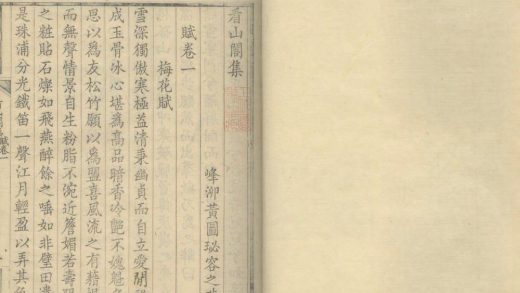 看山閣集
峰泖黃圖珌容之
賦卷一
梅花賦
雪深獨傲寒極益清秉幽貞而自立愛閒
成玉骨冰心堪為高品暗香冷艷不媿
思以為友松竹願以為盟喜風流之有藉
而無聲情景自生粉脂不涴近簷媚若壽
之粧貼石燦如飛燕醉餘之唾如非璧田
是珠浦分光鐵笛一聲江月輕盈以弄其
賦卷一